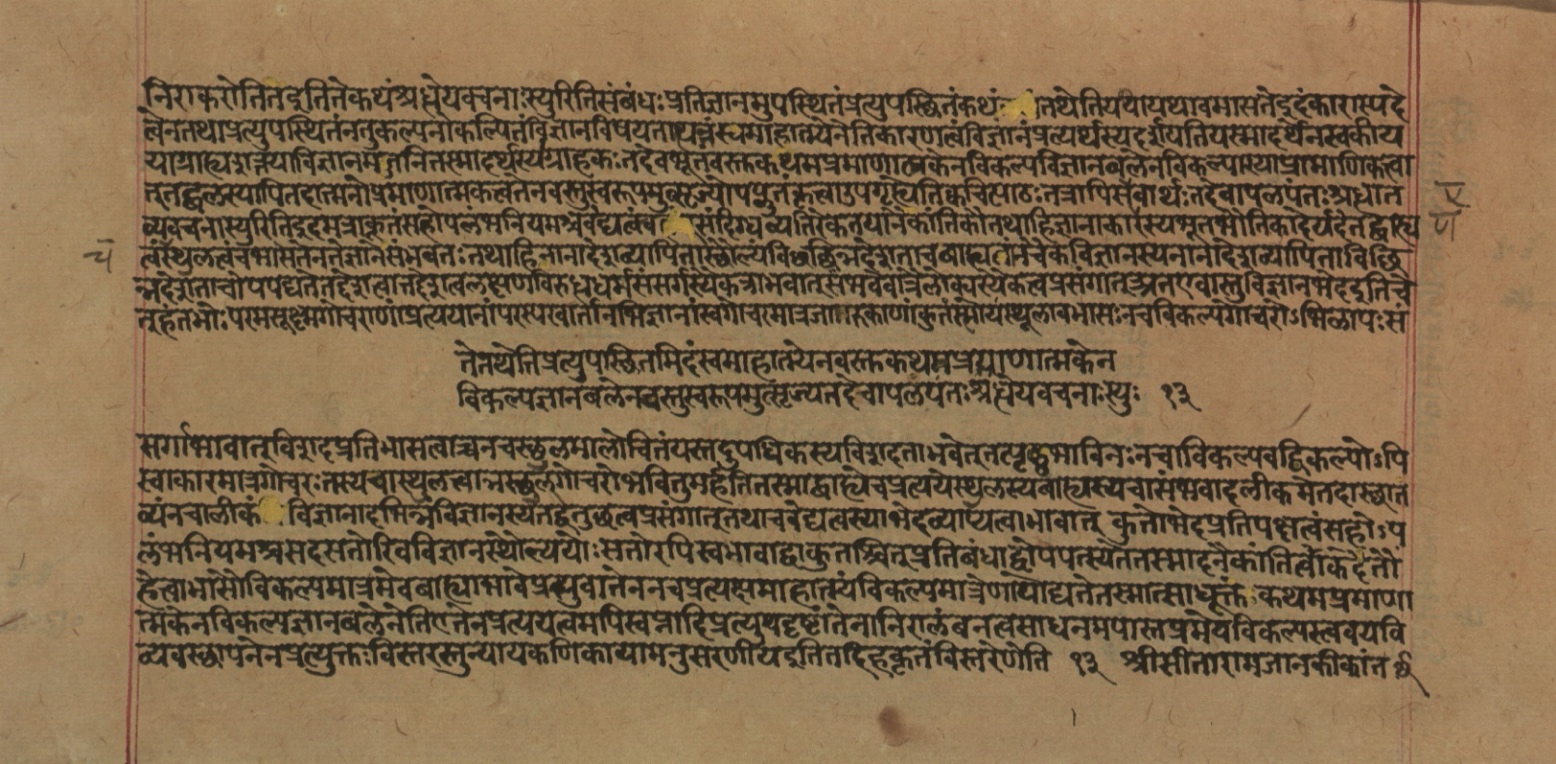 निराकरोतितेइतितेकथंश्रद्धेयवचनाःस्युरितिसंबंधःप्रतिज्ञानमुपस्थितंप्रत्युपस्थितंकथं तथेतियथायथावभासतेइदंकारास्पदे
त्वेनतथाप्रत्युपस्थितंनतुकल्पनाकल्पितंविज्ञानविषयतापन्नंस्वमाहात्म्येनेतिकारणत्वंविज्ञानंप्रत्यर्थस्यदर्शयतियस्मादर्थेनस्वकीय
याग्राह्यशक्त्याविज्ञानमजनितस्मादर्थस्यग्राहकःतदेवंभूतंवस्तुकथमप्रमाणात्मकेनविकल्पविज्ञानबलेनविकल्पस्याप्रामाणिकत्वा
त्तद्बलस्यापितदात्मनोप्रमाणात्मकत्वंतेनवस्तुस्वरूपमुत्सृज्योपप्लुतंकृत्वाऽपगृह्येतिक्वचित्पाठःतत्रापिसएवार्थःतदेवापलपंतःश्रद्धात
व्यवचनास्युरितिइदमत्राकूतंसहोपलंभनियमश्चवेद्यत्वं संदिग्धव्यतिरेकतयानैकांतिकौतथाहिज्ञानाकारस्यभूतभौतिकादेर्यदेतद्बाह्य
त्वंस्थूलत्वंचभासेतेनतेज्ञानेसंभवतःतथाहिनानादेशव्यापितास्थौल्यंविच्छिन्नदेशताचबाह्यत्वंनचैकविज्ञानस्यनानादेशव्यापिताविच्छि
न्नदेशताचोपपद्यतेतद्देशत्वातद्देशत्वलक्षणविरुद्धधर्मसंसर्गस्यैकत्राभवात्संभवेवात्रैलोक्यस्यैकत्वप्रसंगात्अतएवास्तुविज्ञानभेदइतिचे
त्हंतभोःपरमसूक्ष्मगोचराणांप्रत्ययानांपरस्परवार्तानभिज्ञानांस्वगोचरमात्रजागरूकाणांकुतस्त्योयंस्थूलावभासःनचविकल्पगोचरोऽभिलापःसं
तेतथेतिप्रत्युपस्थितमिदंस्वमाहात्म्येनवस्तुकथमप्रमाणात्मकेन
विकल्पज्ञानबलेनवस्तुस्वरूपमुत्सृज्यतदेवापलपंतःश्रद्धेयवचनाःस्युः १३
सर्गाभावात्विशदप्रतिभासत्वाच्चनचस्थूलमालोचितंयस्तदुपाधिकस्यविशदताभवेत्तत्पृष्ठभाविनःनचाविकल्पवद्विकल्पोऽपि
स्वाकारमात्रगोचरःतस्यचास्थूलत्वान्नस्थूलगोचरोभवितुमर्हतितस्माद्बाह्येचप्रत्ययेस्थूलस्यबाह्यस्यचासंभवादलीकमेतदास्थात
व्यंनचालीकं विज्ञानादभिन्नंविज्ञानस्यतद्वत्तुच्छत्वप्रसंगात्तथाचवेद्यत्वस्याभेदव्याप्यत्वाभावात् कुतोभेदप्रतिपक्षत्वंसहोऽप
लंभनियमश्चसदसतोरिवविज्ञानस्थौल्ययोःसतोरपिस्वभावाद्वाकुतश्चित्प्रतिबंधाद्वोपपत्स्यतेतस्मादनैकांतिकत्वादेतौ
हेत्वाभासौविकल्पमात्रमेवबाह्याभावेप्रसुवातेननचप्रत्यक्षमाहात्म्यंविकल्पमात्रेणापोद्यतेतस्मात्साधूक्तं कथमप्रमाणा
त्मकेनविकल्पज्ञानबलेनेतिएतेनप्रत्ययत्वमपिस्वप्नादिप्रत्ययदृष्टांतेनानिरालंबनत्वसाधनमपास्तप्रमेयविकल्पस्त्ववयवि
व्यवस्थापनेनप्रत्युक्तःविस्तरस्तुन्यायकणिकायामनुसरणीयइतितदिहकृतंविस्तरेणेति १३ श्रीसीतारामजानकीकांत